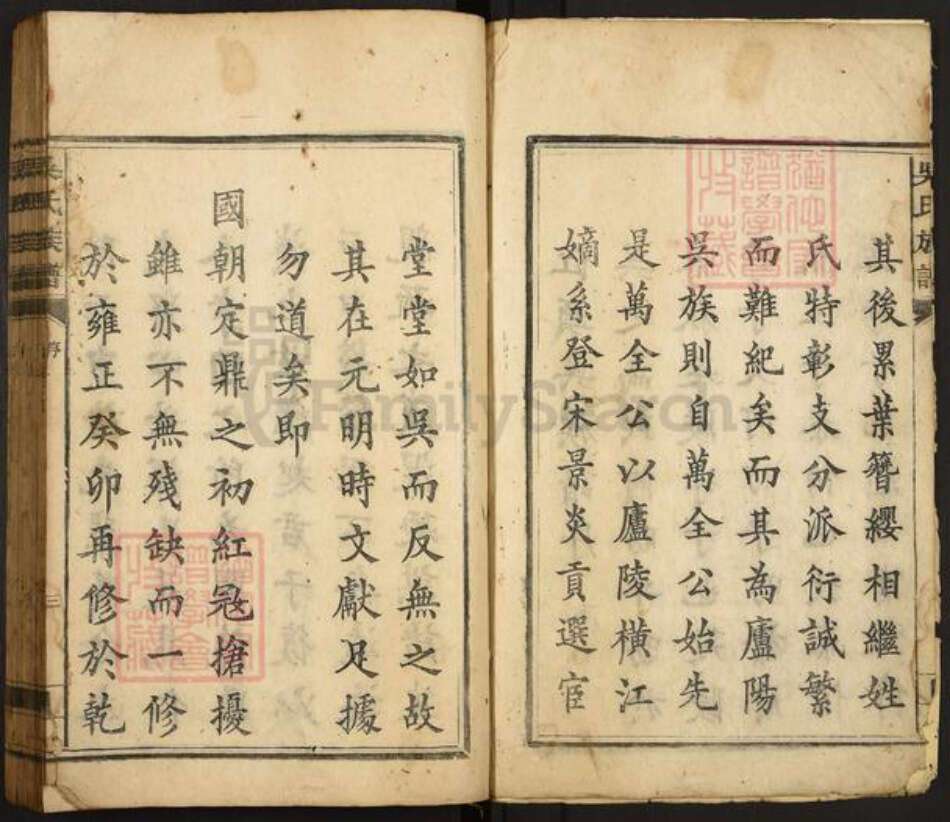 其後累葉簪纓相繼姓
氏特彰支分派衍誠繁
而難紀矣而其為廬陽
吳族則自萬全公始先
是萬全公以廬陵橫江
嫡系登宋景炎貢選宦
堂堂如吳而反無之故
其在元明時文獻足據
勿道矣即
國朝定鼎之初紅冦搶擾
雖亦不無殘缺而一修
於雍正癸卯再修於乾
吳氏族譜
序
吳氏族譜
FamilySearch